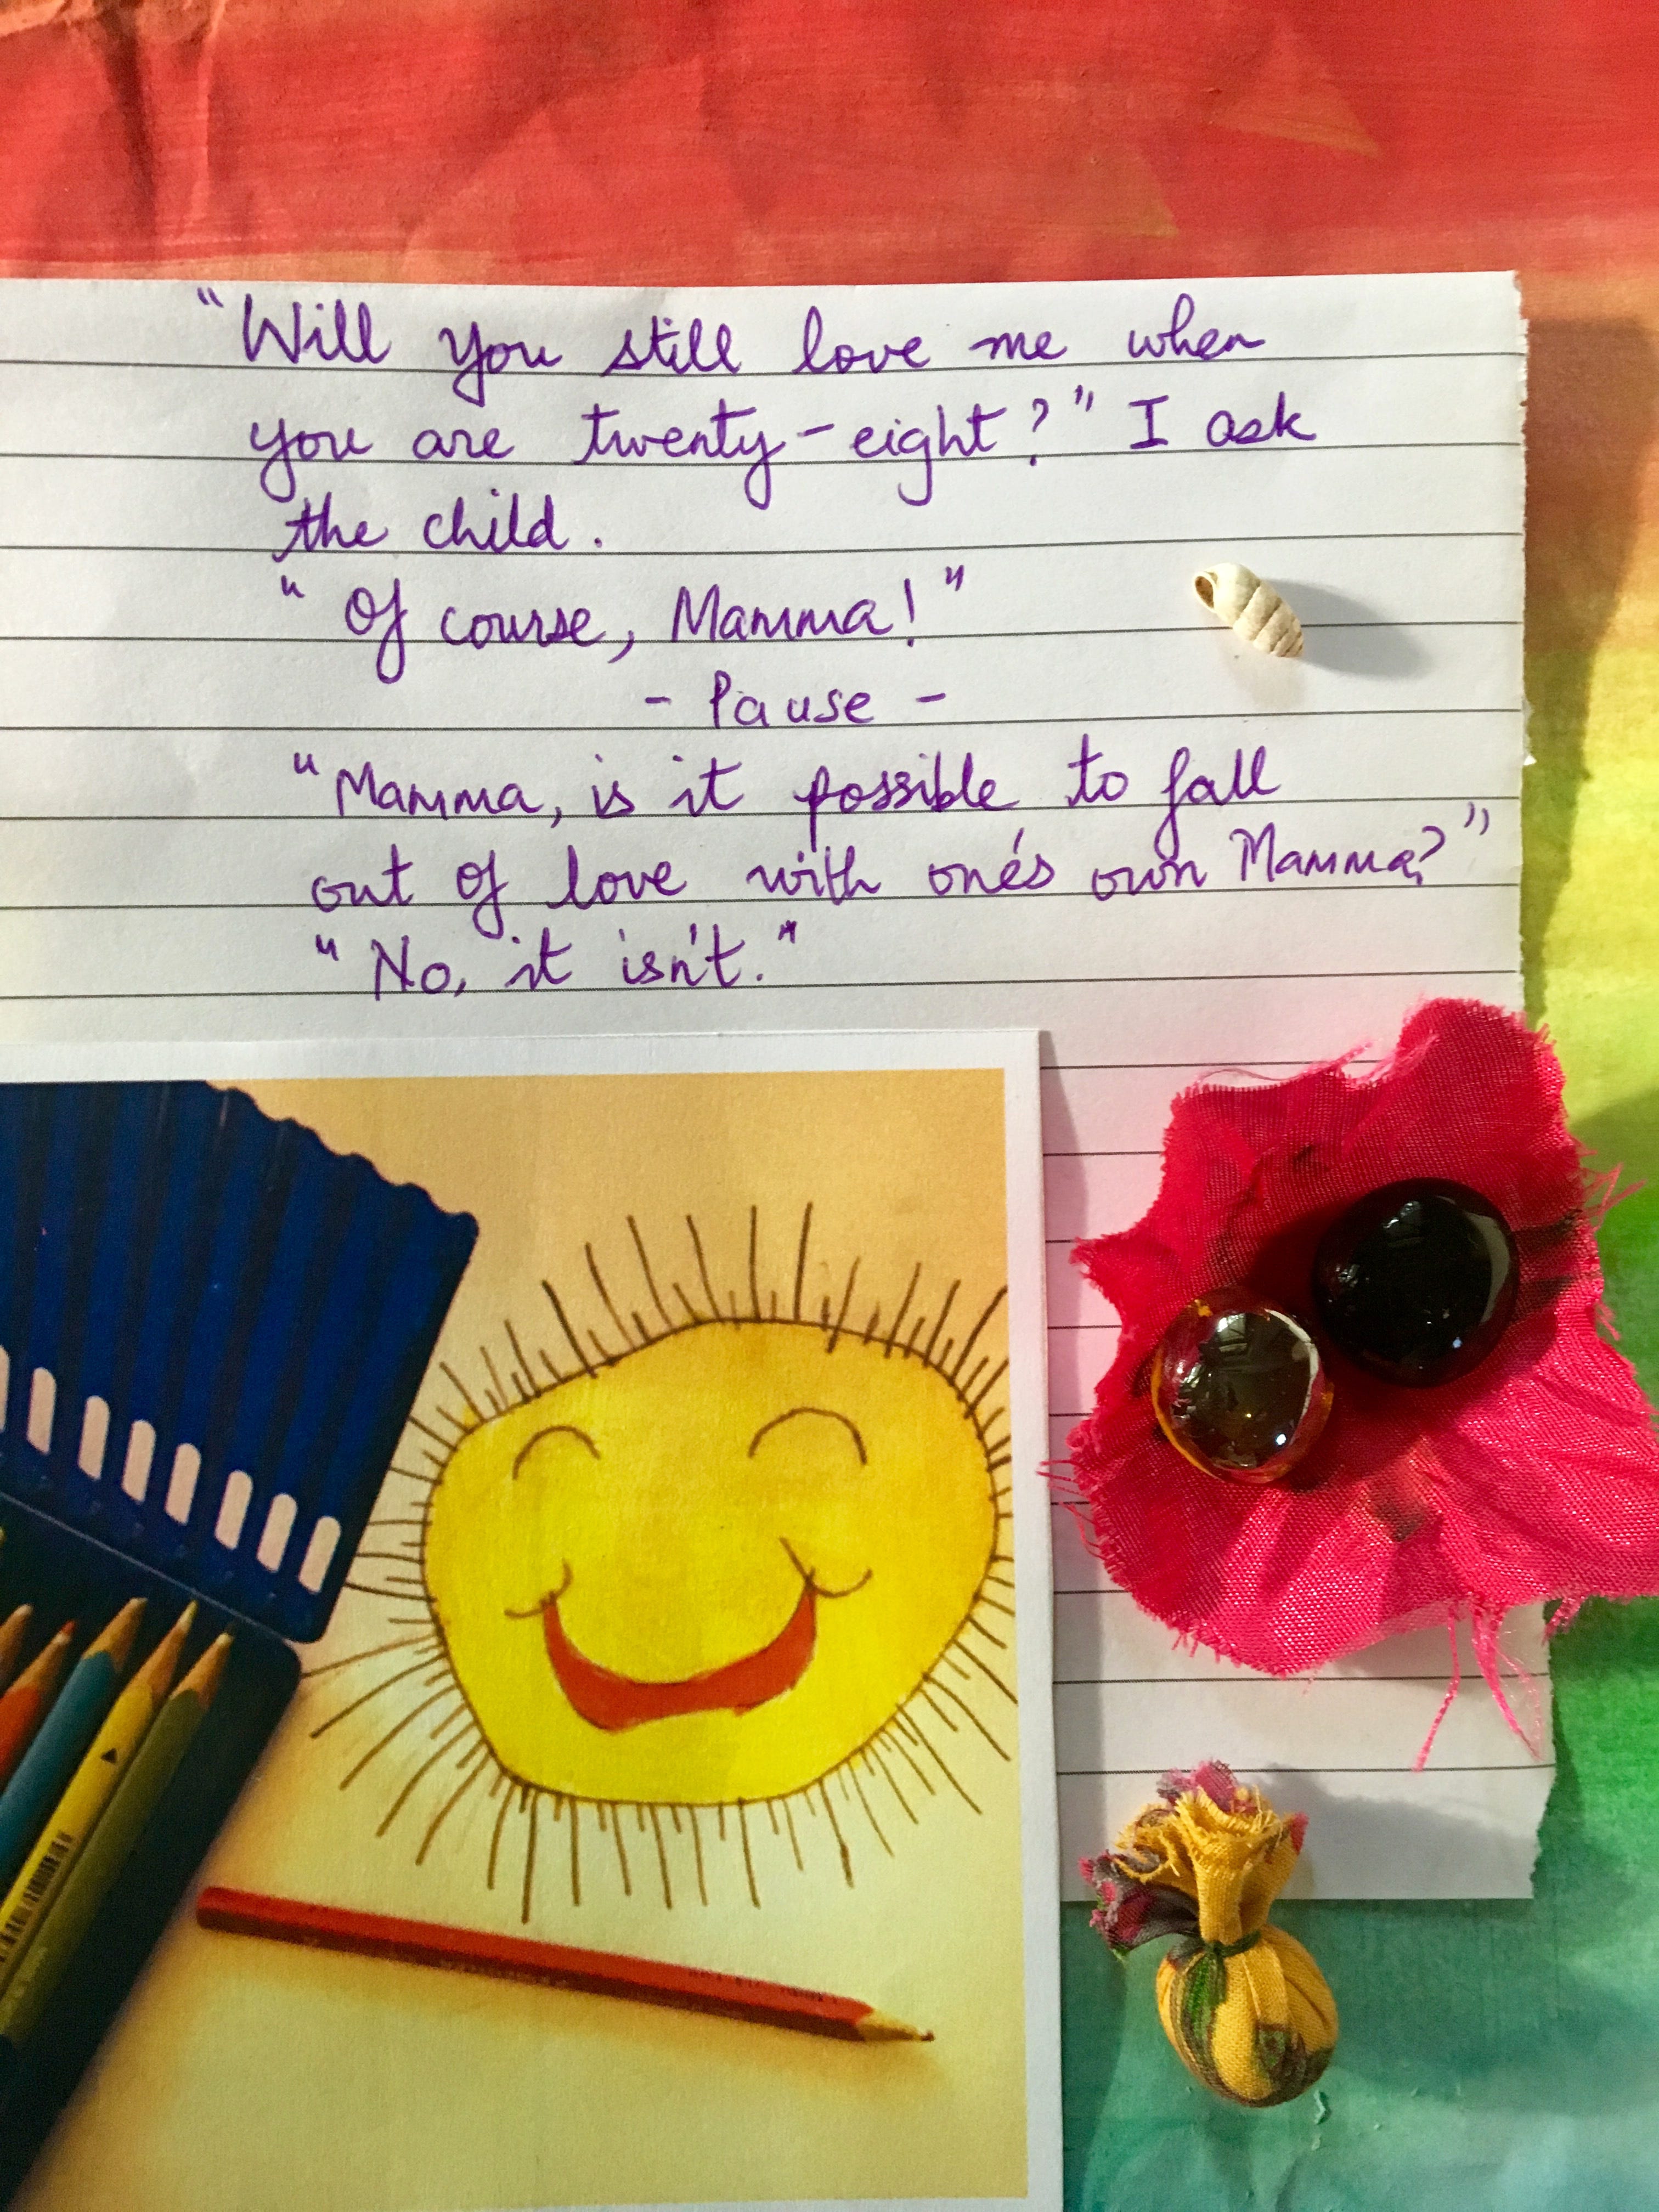 "Will you still love me when
you are twenty-eight?" I ask
the child.
"Of course, Mamma!"
- Pause -
"Mamma, is it possible to fall
out of love with one's own Mamma?"
"No, it isn't."